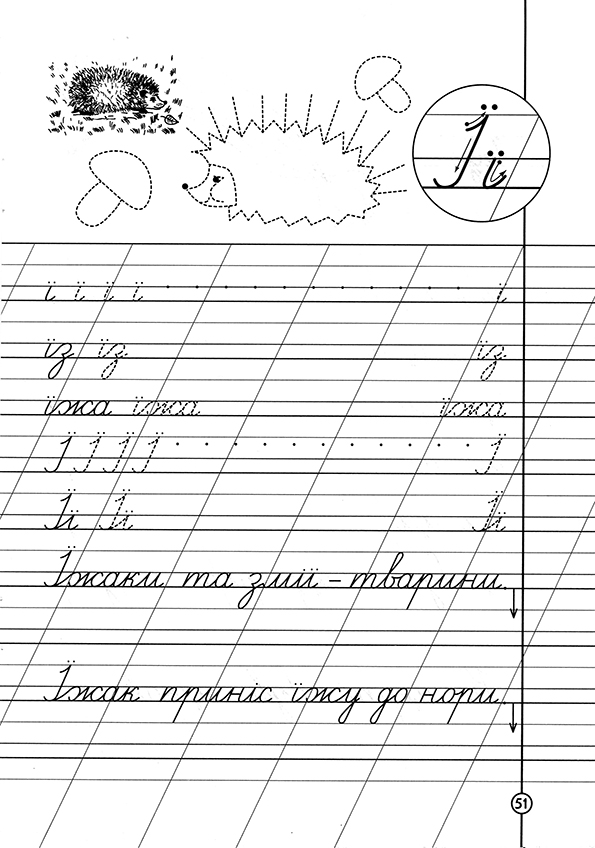 Її
ї ї ї ї ї
їз їз їз
їжа їжа їжа
Ї Ї Ї Ї Ї
Її Її Її
Їжаки та змії – тварини.
Їжак приніс їжу до нори.
51